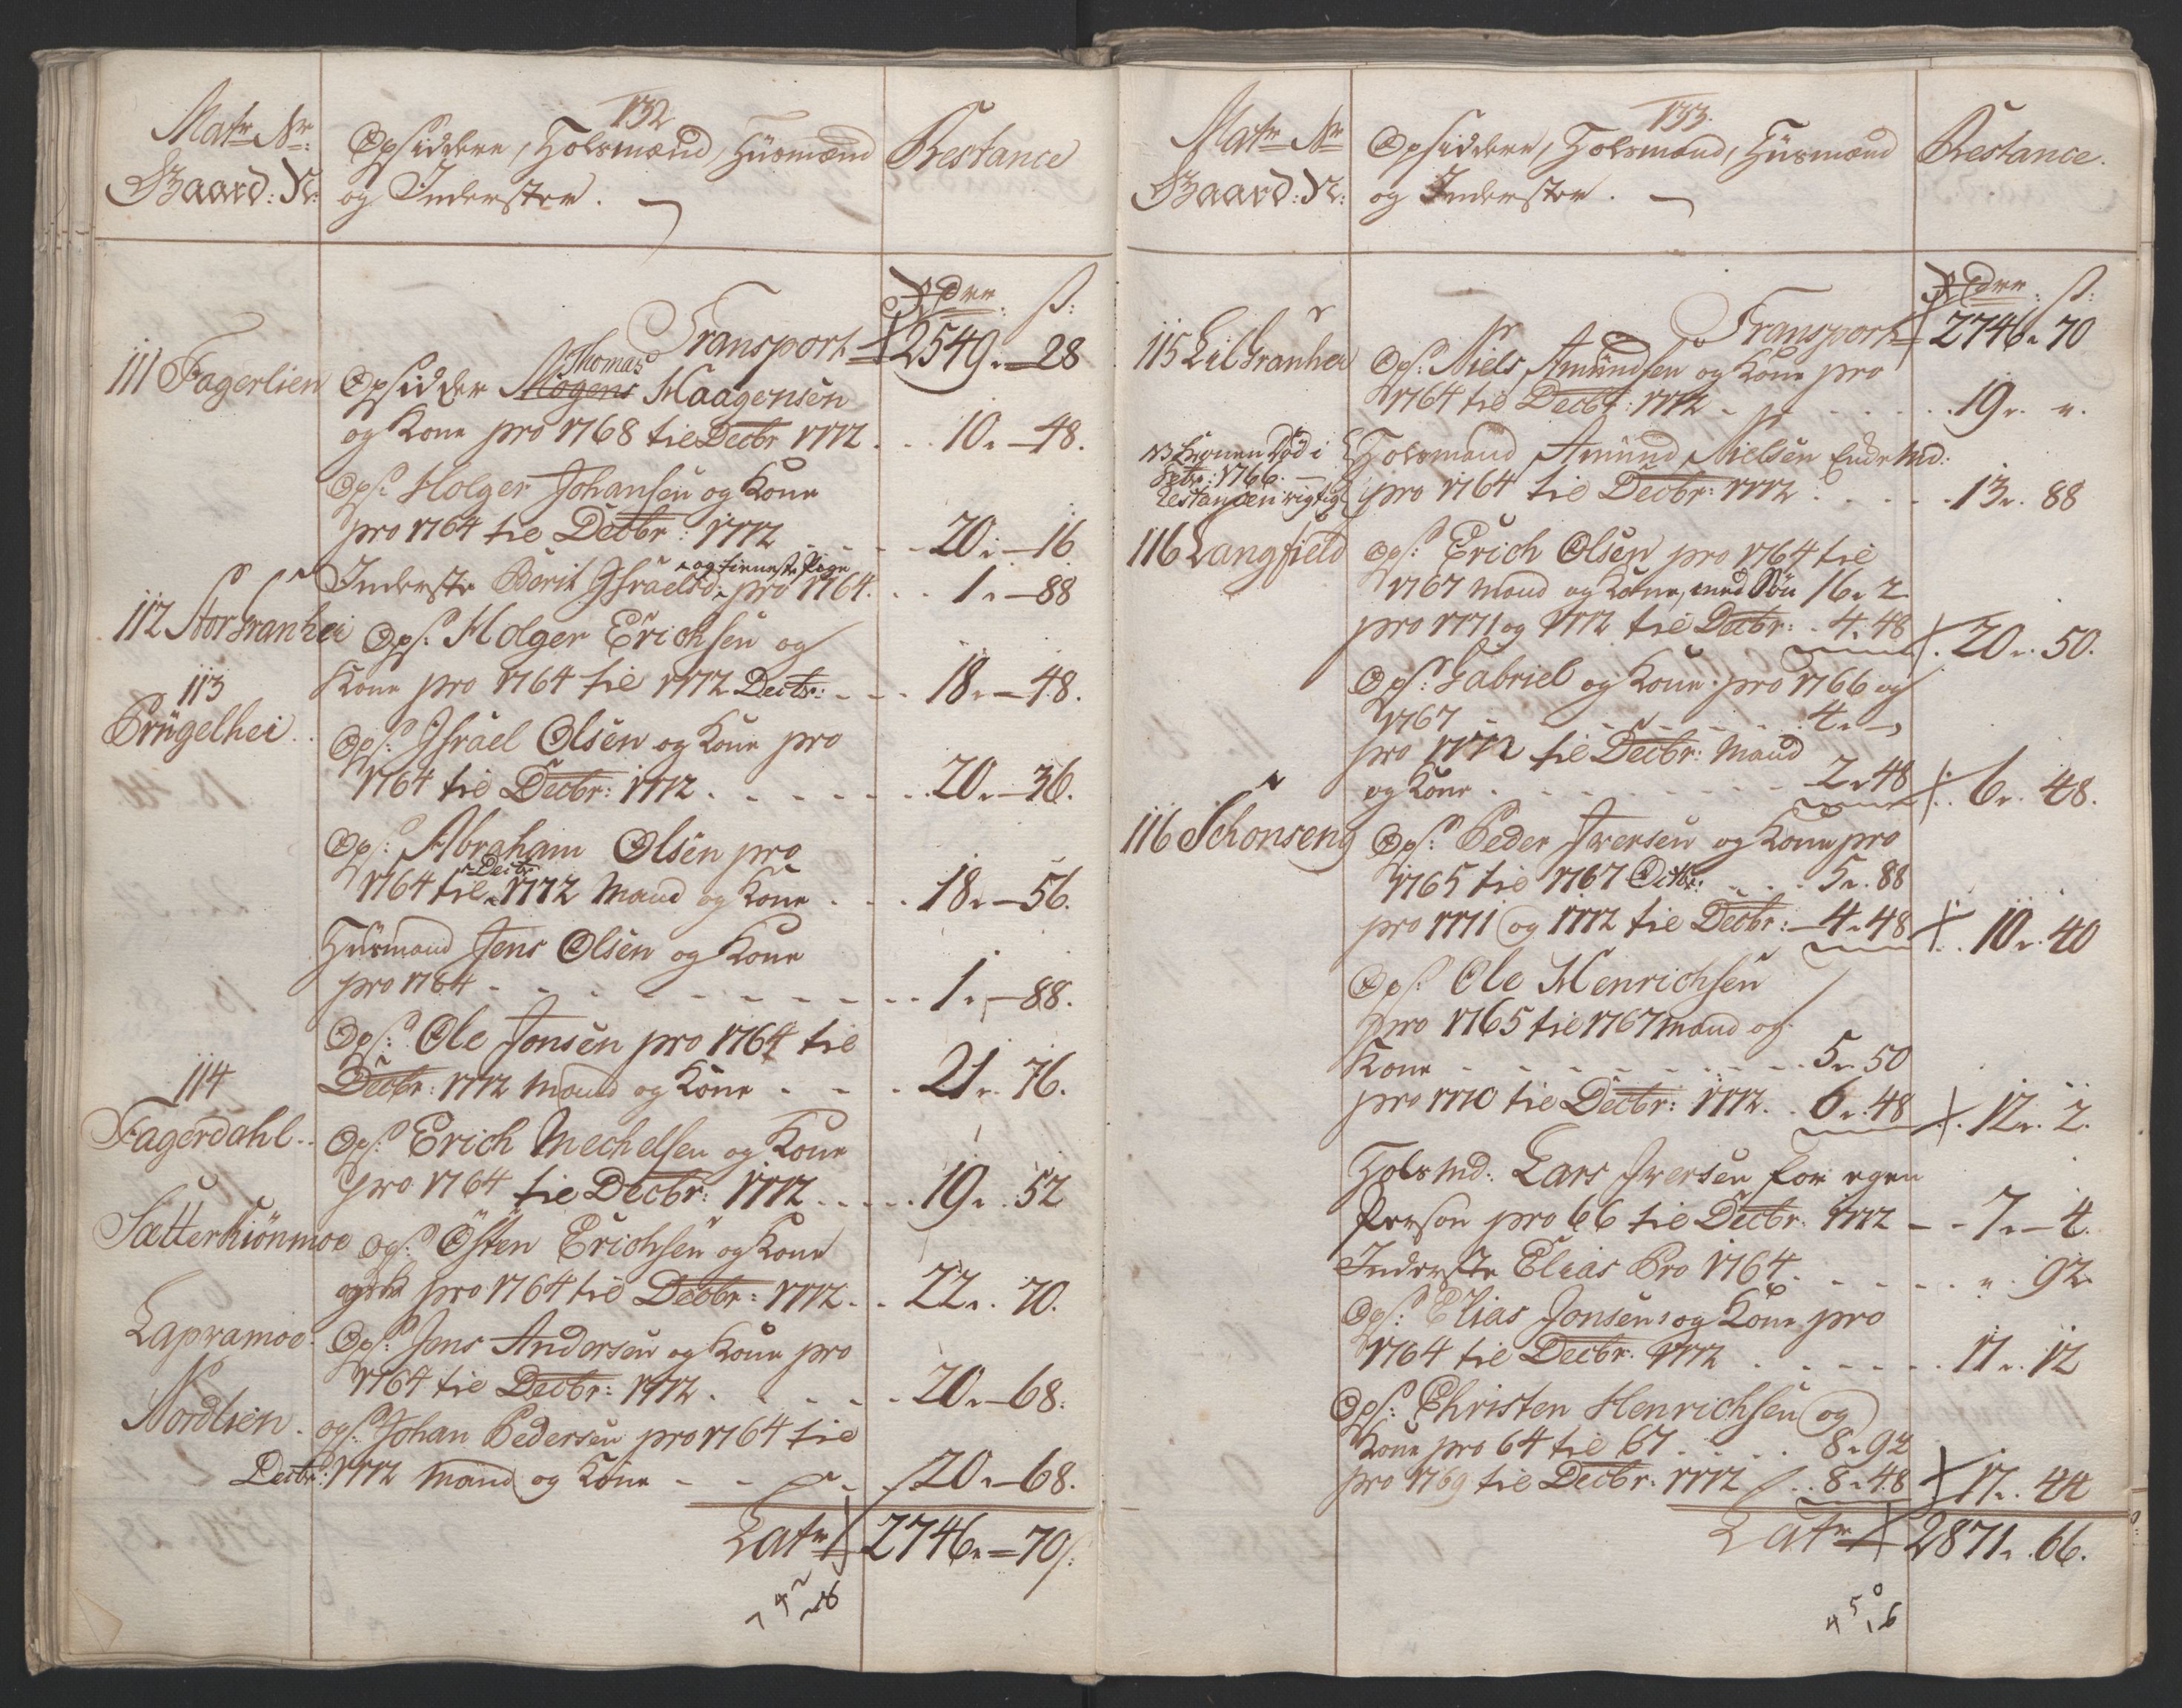 132
Matr Nr:
Gaard: N:
Opsiddere, Holsmænd, Huusmænd
og Inderster.
Restance
Rdr ß:
Transport 2549. 28
111 Fagerlien
Thomas
Opsidder Mogens Haagensen
og Kone pro 1768 til Decbr 1772 . . 10. 48.
Ops: Holger Johansen og Kone
pro 1764 til Decbr: 1772 20. 16
og tienneste Pige
Inderste Borit Israelsd: pro 1764. . . 1. 88
112 Stor Granhei Ops: Holger Erichsen og
Kone pro 1764 til 1772 Decbr: . . 18. 48.
113
Prügelhei Ops: Israel Olsen og Kone pro
1764 til Decbr: 1772 . . . . 20. 36.
Ops: Abraham Olsen pro
Decbr
1764 til 1772 Mand og Kone . . 18. 56.
Huusmand Jens Olsen og Kone
pro 1764 . . . . . 1. 88.
Ops: Ole Jonsen pro 1764 til
Decbr: 1772 Mand og Kone . . 21. 76.
114
Fagerdahl Ops: Erich Mechelsen og Kone
pro 1764 til Decbr: 1772 . . . 19. 52
Sætterkiønmoe Ops: Östen Erichsen og Kone
pro 1764 til Decbr: 1772 . . 22. 70.
Lapramoe Ops: Jens Andersen og Kone pro
1764 til Decbr: 1772 . . . 20. 68.
Nordlien. Ops: Johan Pedersen pro 1764 til
Decbr: 1772 Mand og Kone . . 20. 68.
Latr 2746. 70 ß.
133.
Matr Nr
Gaard: N:
Opsiddere, Holsmænd, Huusmænd
og Inderster.
Restance.
Rdr. ß:
Transport 2746. 70
115 Lil Granhei Ops: Niels Amundsen og Kone pro
1764 til Decbr: 1772 . . . 19. ".
NB Konen Död i
1766.
Restancen rigtig
Holsmand Amund Nielsen Enckemd:
pro 1764 til Decbr: 1772 . . . 13. 88
116 Langfield Ops: Erich Olsen pro 1764 til
1767 Mand og Kone, med Søn 16. 2
pro 1771 og 1772 til Decbr: . 4. 48 . 20. 50.
Ops: Gabriel og Kone pro 1766 og
1767 . . . . . 4. –
pro 1772 til Decbr: Mand
og Kone . . . . . 2. 48 . 6. 48.
116 Schonseng Ops: Peder Iversen og Kone pro
1765 til 1767 Decbr: . . 5. 88
pro 1771 og 1772 til Decbr: 4. 48 . 10. 40
Ops: Ole Henrichsen
pro 1765 til 1767 Mand og
Kone . . . . . . 5. 50
pro 1770 til Decbr: 1772. . 6. 48 . 12. 2.
Holsmd: Lars Iversen for egen
Person pro 66 til Decbr. 1772 . . 7. 4.
Inderste Elias Pro 1764. . . . ". 92
Ops: Elias Jonsen og Kone pro
1764 til Decbr. 1772 . . . . 17. 12
Ops: Christen Henrichsen og
Kone pro 64 til 67. . . . 8. 92
pro 1769 til Decbr. 1772 . . 8. 48 17. 44
Latr 2871. 66.